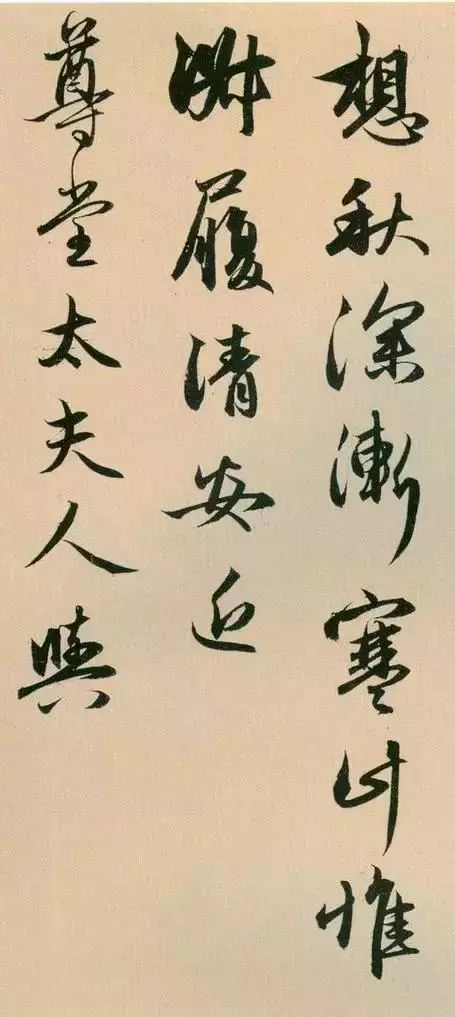 想秋深漸寒計惟
淵履清安近
尊堂太夫人與